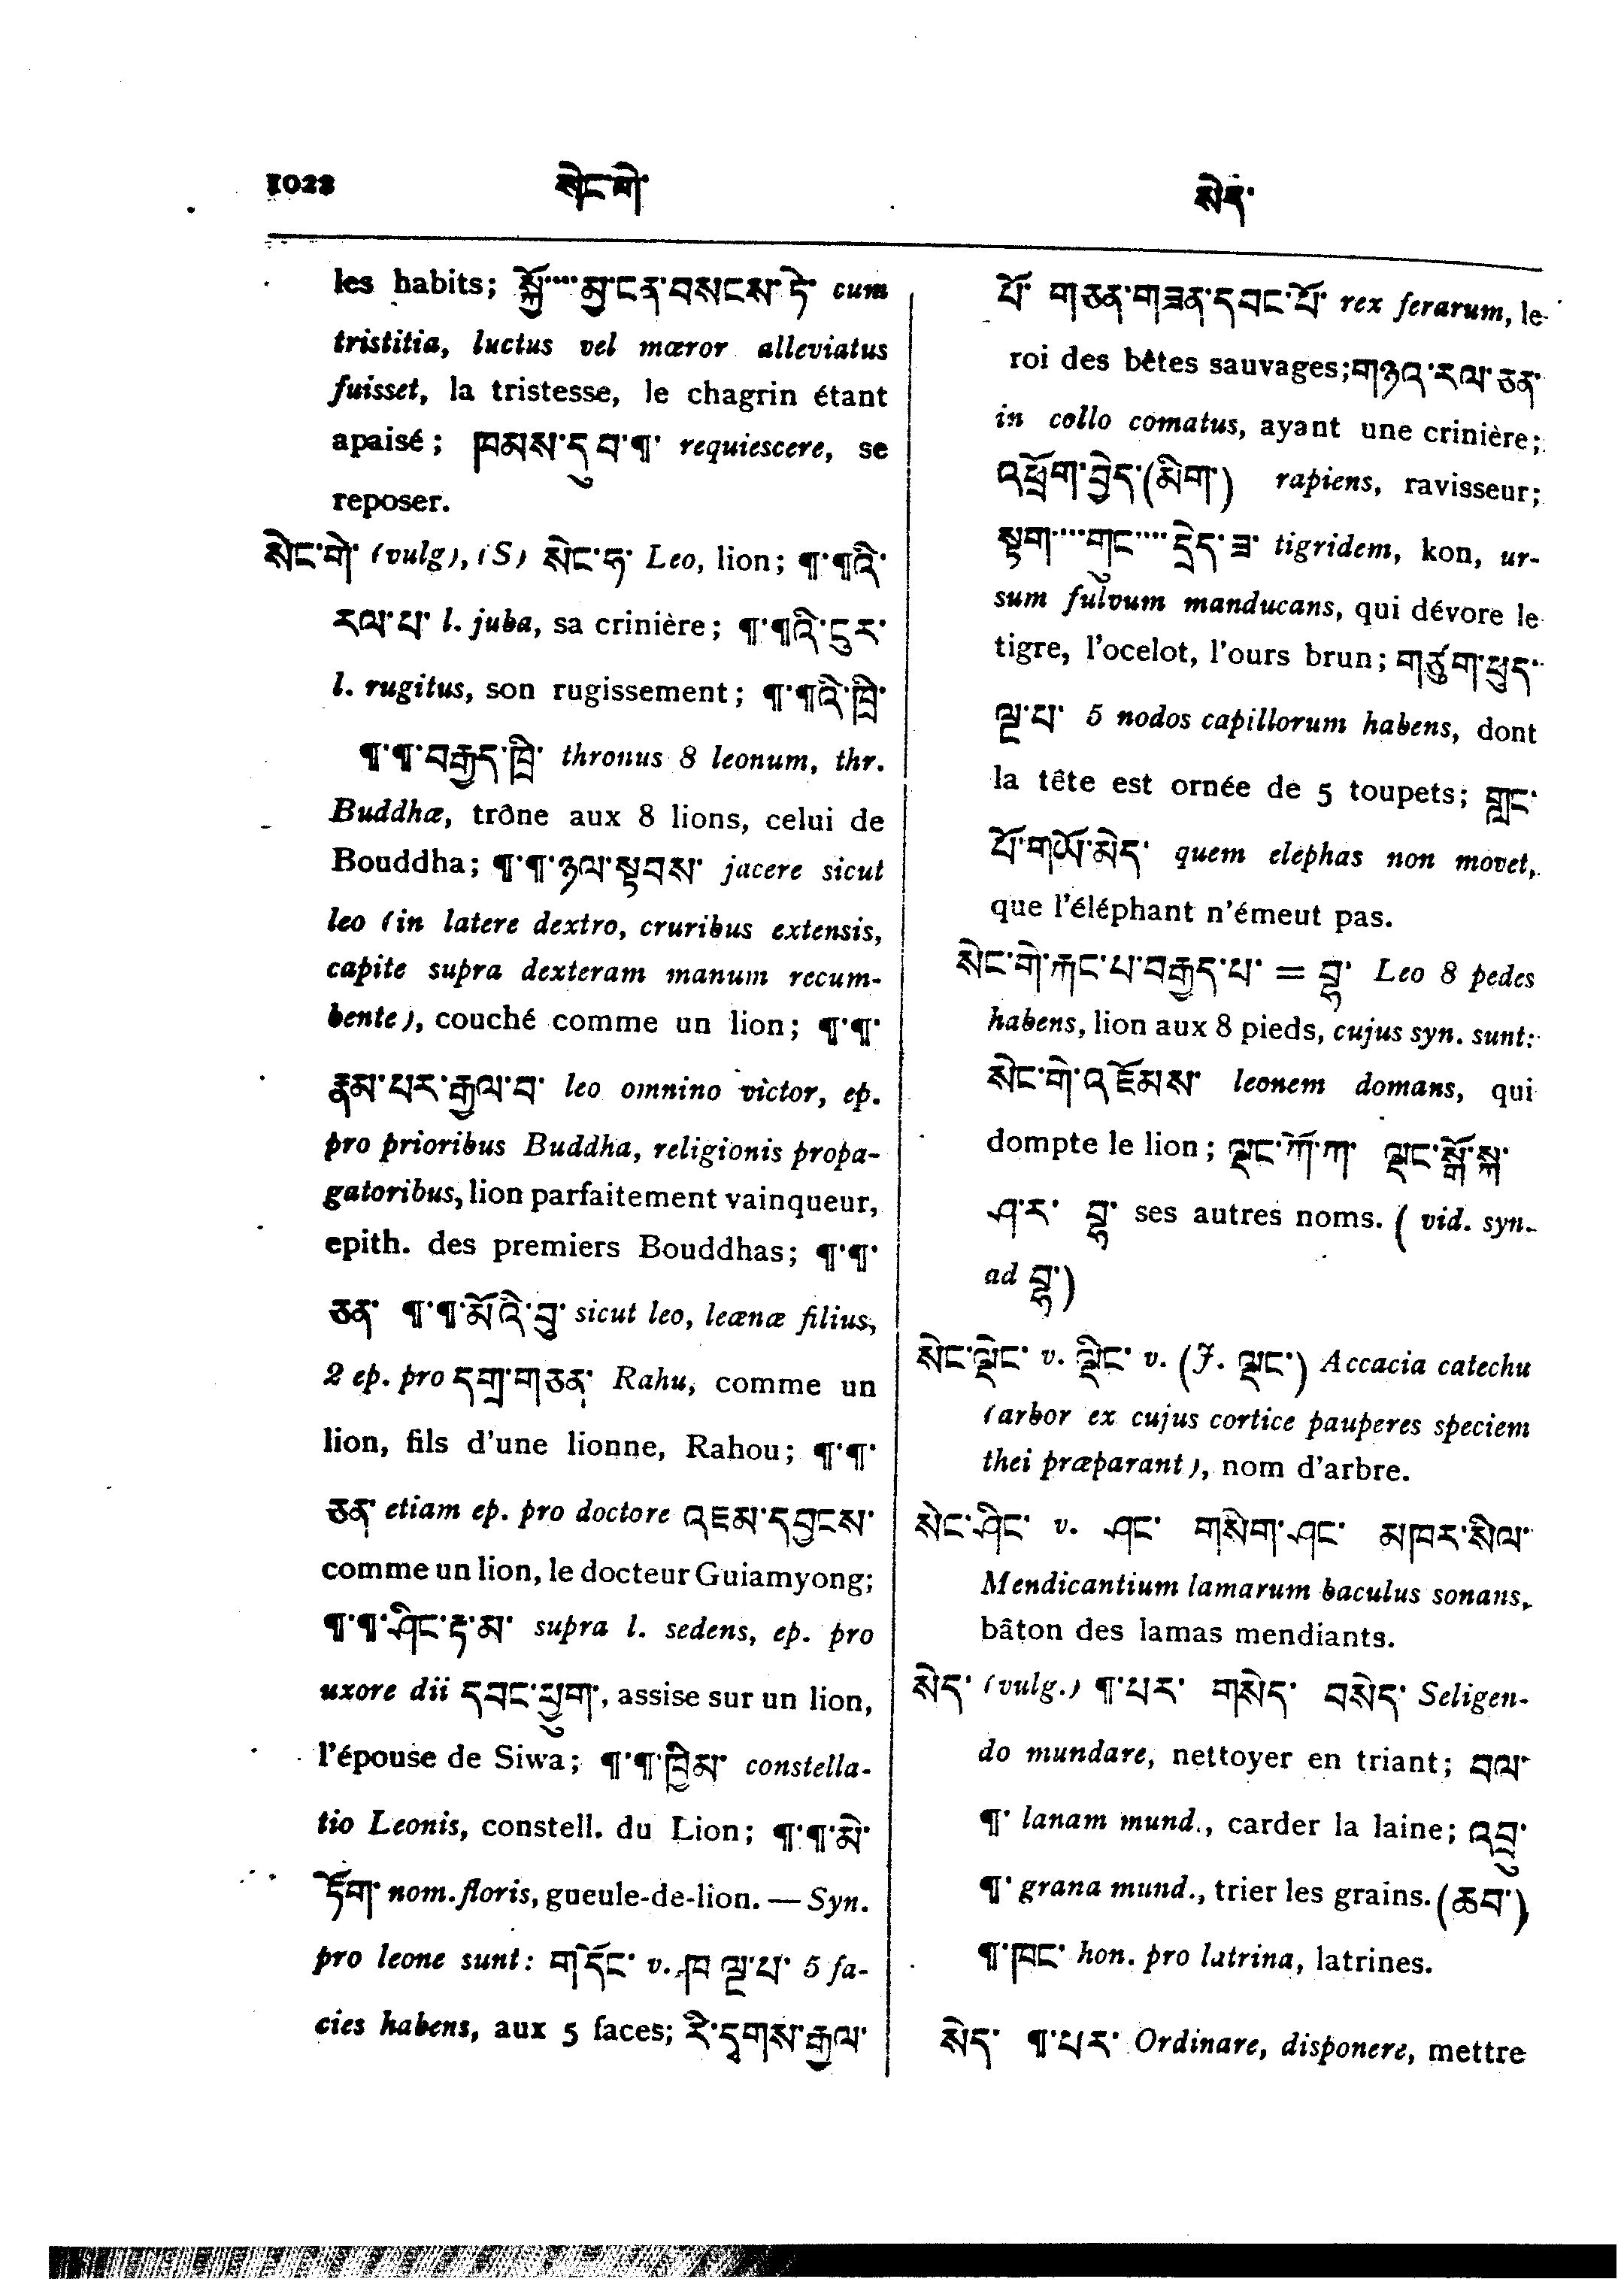 1022 སེང་གེ་ སེད་
les habits; སྐྱོ་···མྱ་ངན་བསངས་ཏེ་ cum
tristitia, luctus vel mœror alleviatus
fuisset, la tristesse, le chagrin étant
apaisé; ཁམས་དུབ་¶་ requiescere, se
reposer.
སེང་གེ་ (vulg), (S) སེང་ཧ་ Leo, lion; ¶་¶འི་
རལ་པ་ l. juba, sa crinière; ¶་¶འི་ངུར་
l. rugitus, son rugissement; ¶་¶འི་ཁྲི་
¶་¶་བརྒྱད་ཁྲི་ thronus 8 leonum, thr.
Buddhæ, trône aux 8 lions, celui de
Bouddha; ¶་¶་ཉལ་སྟབས་ jacere sicut
leo (in latere dextro, cruribus extensis,
capite supra dexteram manum recum-
bente), couché comme un lion; ¶་¶་
རྣམ་པར་རྒྱལ་བ་ leo omnino victor, ep.
pro prioribus Buddha, religionis propa-
gatoribus, lion parfaitement vainqueur,
epith. des premiers Bouddhas; ¶་¶་
ཅན་ ¶་¶་མོའི་བུ་ sicut leo, leænæ filius,
2 ep. pro དགྲ་གཅན་ Rahu, comme un
lion, fils d'une lionne, Rahou; ¶་¶་
ཅན་ etiam ep. pro doctore འཇམ་དབྱངས་
comme un lion, le docteur Guiamyong;
¶་¶་ཤིང་རྟ་མ་ supra l. sedens, ep. pro
uxore dii དབང་ཕྱུག་, assise sur un lion,
l'épouse de Siwa; ¶་¶་ཁྱིམ་ constella-
tio Leonis, constell. du Lion; ¶་¶་མེ་
ཏོག་ nom. floris, gueule-de-lion. — Syn.
pro leone sunt: གདོང་ v. ཁ ལྔ་པ་ 5 fa-
cies habens, aux 5 faces; རི་དྭགས་རྒྱལ་
པོ་ གཅན་གཟན་དབང་པོ་ rex ferarum, le
roi des bêtes sauvages; གཉའ་རལ་ཅན་
in collo comatus, ayant une crinière;
འཕྲོག་བྱེད་(མིག་) rapiens, ravisseur;
སྟག་···གུང་···དྲེད་ཟ་ tigridem, kon, ur-
sum fulvum manducans, qui dévore le
tigre, l'ocelot, l'ours brun; གཙུག་ཕུད་
ལྔ་པ་ 5 nodos capillorum habens, dont
la tête est ornée de 5 toupets; གླང་
པོ་གཡོ་མེད་ quem elephas non movet,
que l'éléphant n'émeut pas.
སེང་གེ་རྐང་པ་བརྒྱད་པ་ = བྷ་ Leo 8 pedes
habens, lion aux 8 pieds, cujus syn. sunt:
སེང་གེ་འཇོམས་ leonem domans, qui
dompte le lion; ལྡང་ཀོ་ཀ་ ལྡང་སྒོ་སྐ་
ཤ་ར་ བྷ་ ses autres noms. (vid. syn.
ad བྷ་)
སེང་ལྡེང་ v. ལྡིང་ v. (J. ལྡང་) Accacia catechu
(arbor ex cujus cortice pauperes speciem
thei præparant), nom d'arbre.
སེང་ཤིང་ v. ཤང་ གསིག་ཤང་ མཁར་སིལ་
Mendicantium lamarum baculus sonans,
bâton des lamas mendiants.
སེད་ (vulg.) ¶་པར་ གསེད་ བསེད་ Seligen-
do mundare, nettoyer en triant; བལ་
¶་ lanam mund., carder la laine; འབྲུ་
¶་ grana mund., trier les grains. (ཆབ་)
¶་ཁང་ hon. pro latrina, latrines.
སེད་ ¶་པར་ Ordinare, disponere, mettre